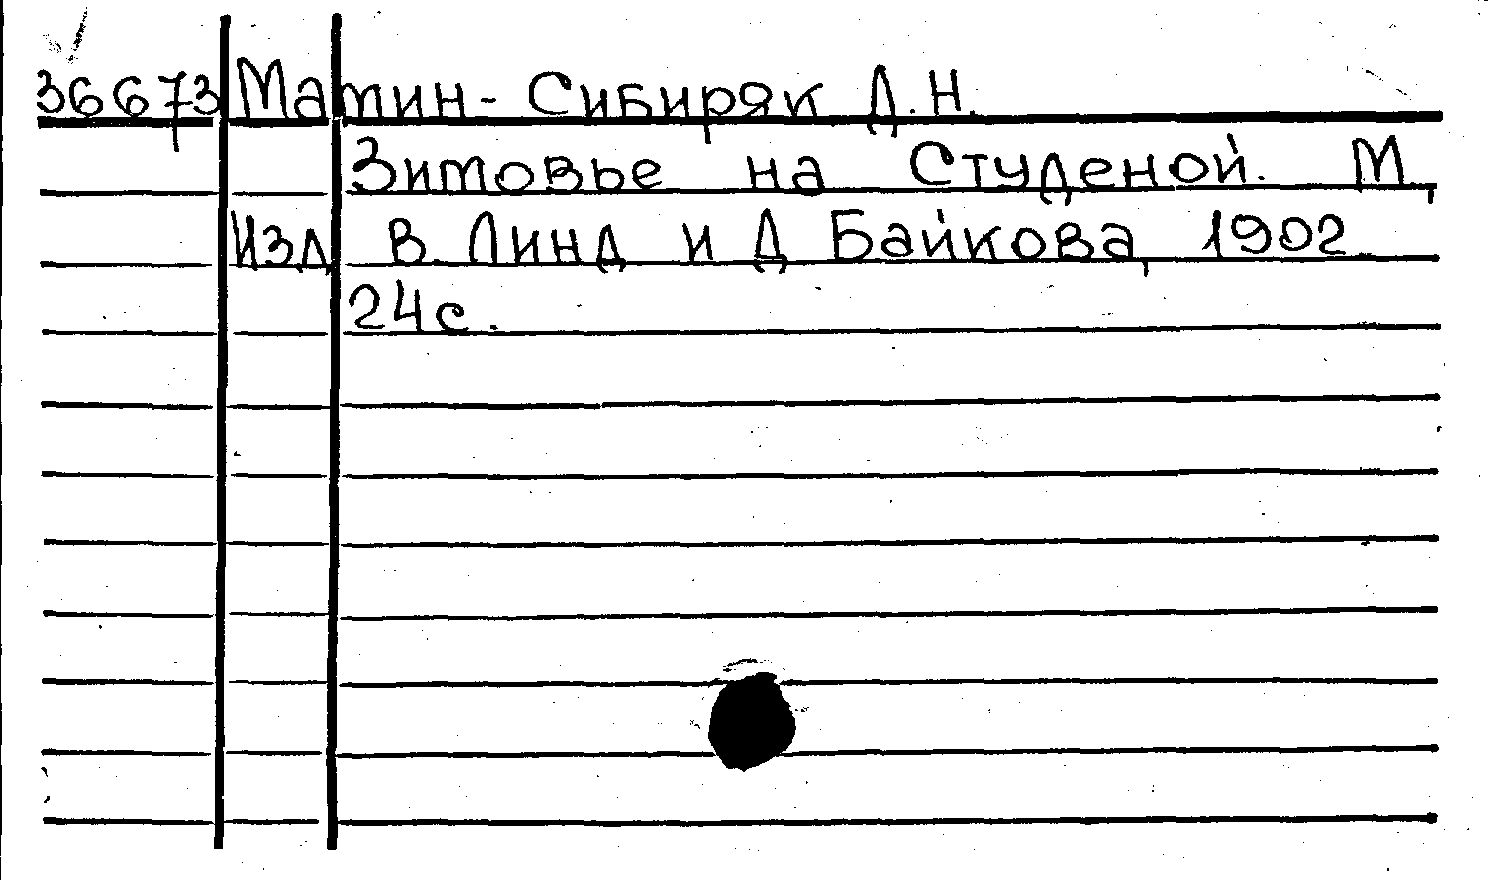 36673 Мамин-Сибиряк Д.Н.
Зимовье на Студеной. М.,
Изд. В. Линд и Д. Байкова, 1902
24с.